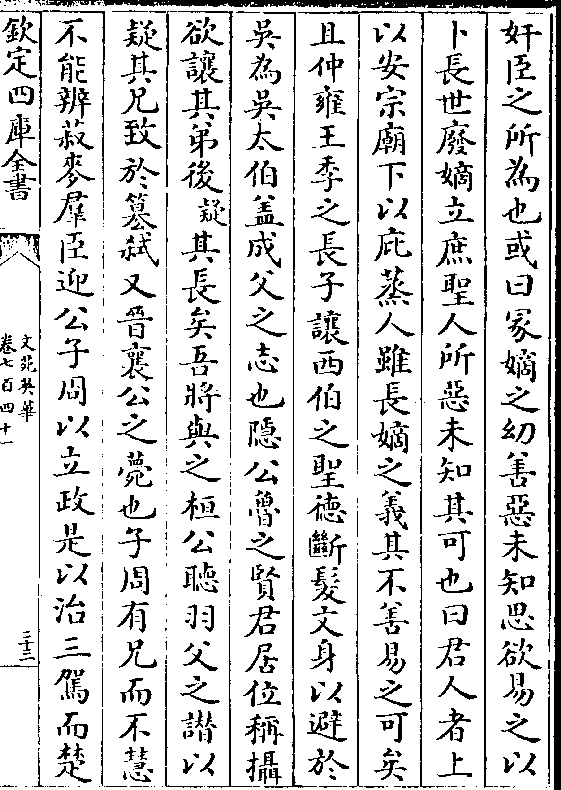 奸臣之所為也或曰冢嫡之幼善惡未知思欲易之以
卜長世廢嫡立庶聖人所惡未知其可也曰君人者上
以安宗廟下以庇蒸人雖長嫡之義其不善易之可矣
且仲雍王季之長子讓西伯之聖德斷髮文身以避於
吳為吳太伯盖成父之志也隠公魯之賢君居位稱攝
欲讓其弟後疑其長矣吾將與之桓公聽羽父之譖以
疑其兄致於簒弑又晉襄公之薨也子周有兄而不慧
不能辨菽麥羣臣迎公子周以立政是以治三駕而楚
欽定四庫全書
文苑英華
卷七百四十一
三十二